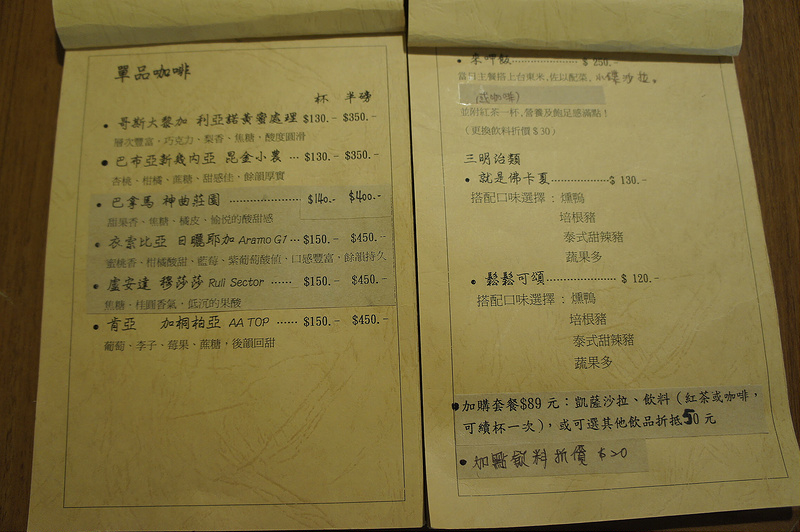 單品咖啡
杯 半磅
哥斯大黎加 利亞諾黃蜜處理 $130.- $350.-
層次豐富，巧克力、梨香、焦糖，酸度圓滑
巴布亞新幾內亞 昆金小農 … $130.- $350.-
杏桃、柑橘、蔗糖、甜感佳，餘韻厚實
巴拿馬 神曲莊園 ……………… $140.- $400.-
甜菓香、焦糖、橘皮、愉悅的酸甜感
衣索比亞 日曬耶加 Aramo G1 … $150.- $450.-
蜜桃香、柑橘酸甜、藍莓、紫葡萄酸值、口感豐富，餘韻持久
盧安達 穆莎莎 Ruli Sector …… $150.- $450.-
焦糖、桂圓香氣，低沉的果酸
肯亞 加桐柏亞 AA TOP …… $150.- $450.-
葡萄、李子、莓果、蔗糖，後韻回甜
來呷飯…………………$ 250.-
當日主餐搭上台東米,佐以配菜，小缇沙拉。
(或咖啡)
並附紅茶一杯,營養及飽足感滿點！
（更換飲料折價＄30）
三明治類
就是佛卡夏………………$ 130.-
搭配口味選擇：燻鴨
培根豬
泰式甜辣豬
蔬果多
鬆鬆可頌…………………$ 120.-
搭配口味選擇：燻鴨
培根豬
泰式甜辣豬
蔬果多
加購套餐$89 元：凱薩沙拉、飲料（紅茶或咖啡，
可續杯一次），或可選其他飲品折抵50元
加點飲料折價 $20